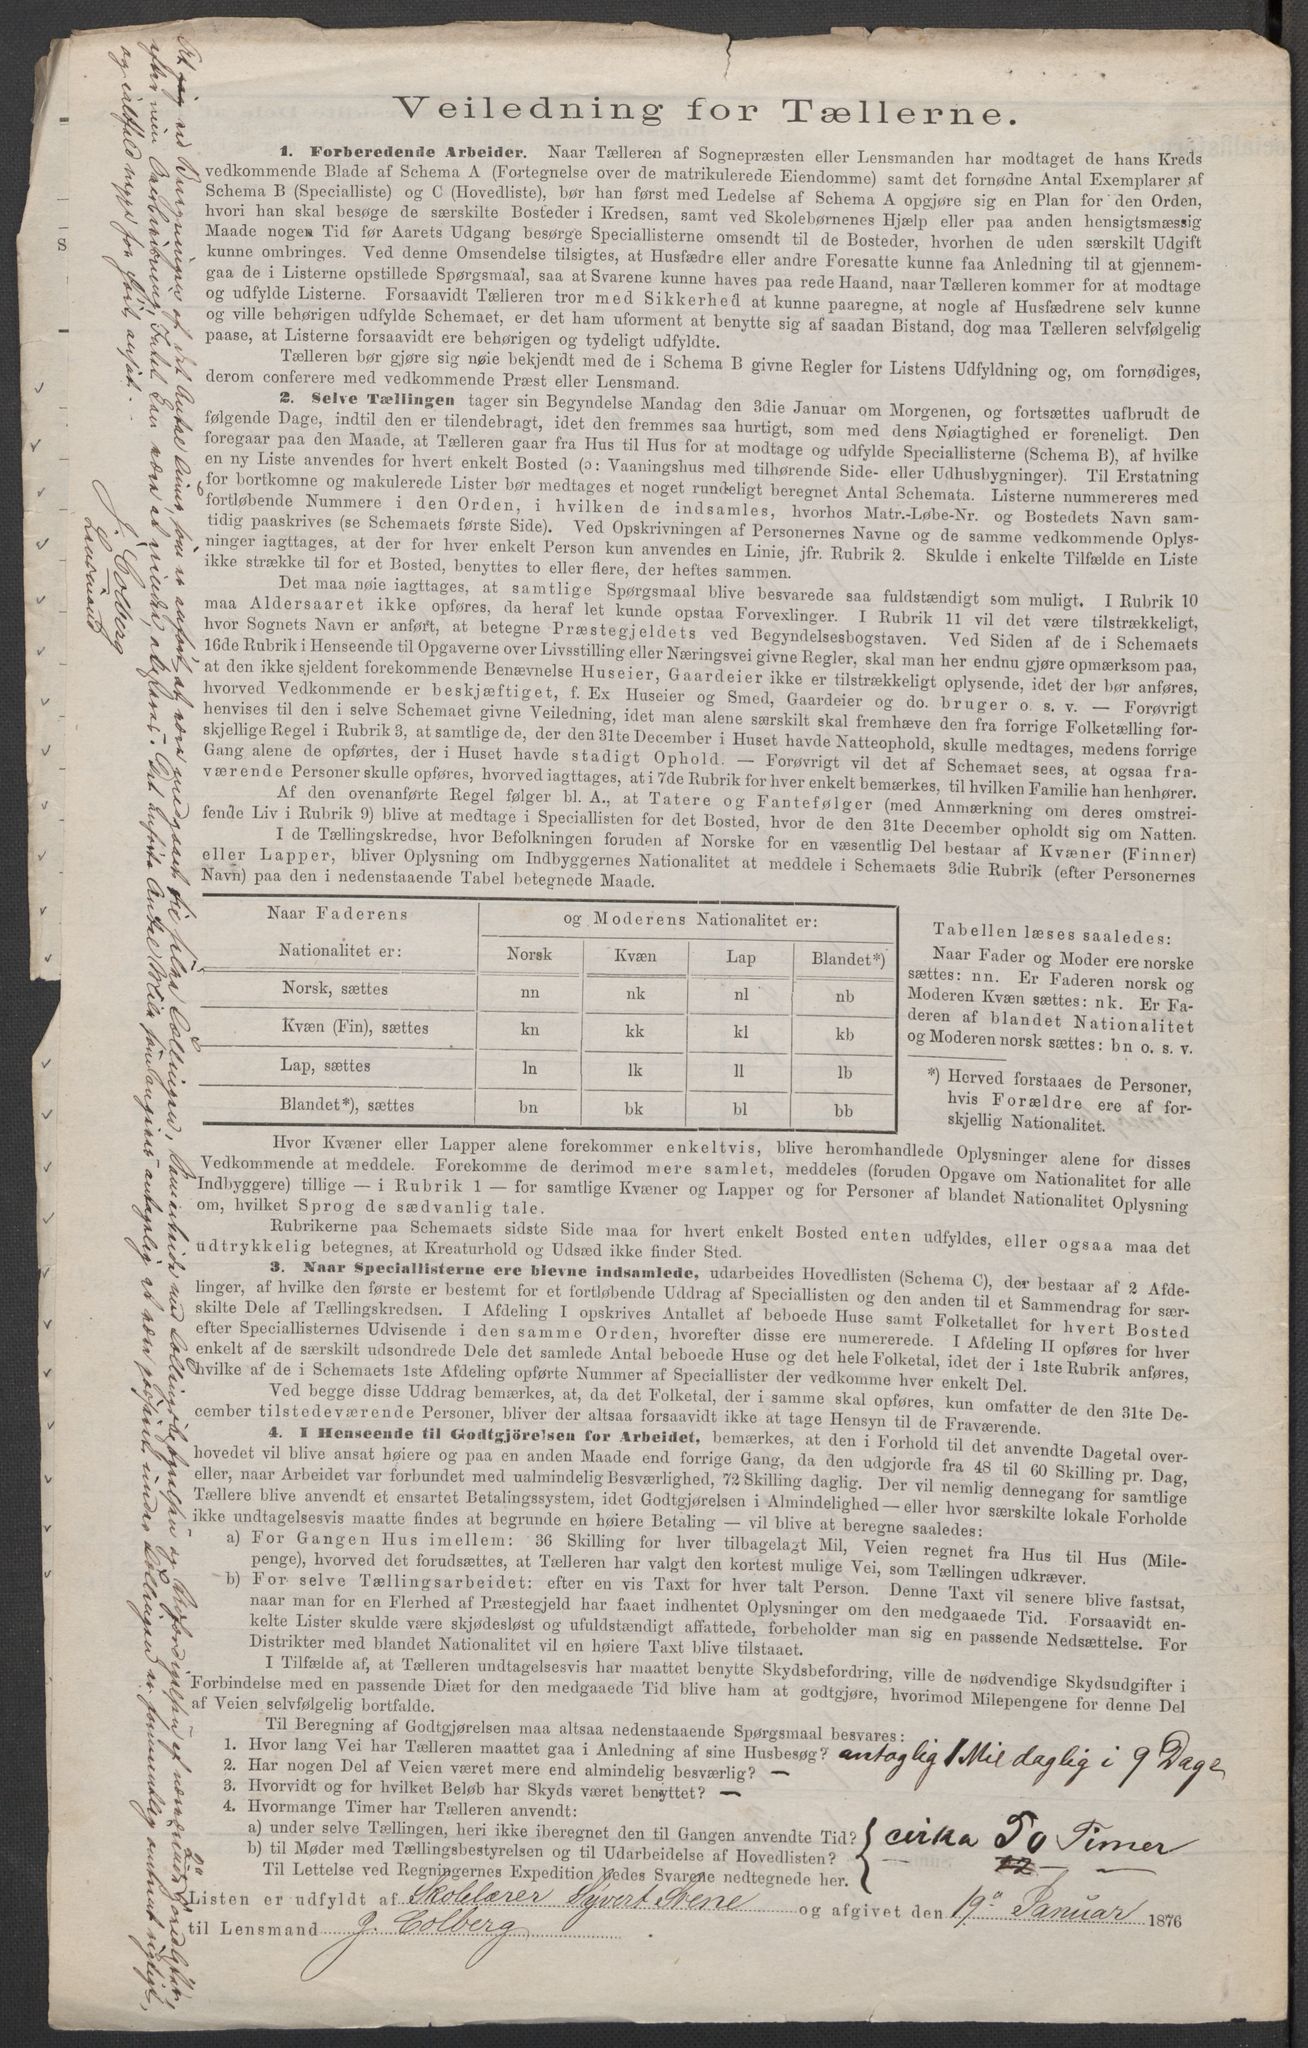 Veiledning for Tællerne.
1. Forberedende Arbeider. Naar Tælleren af Sognepræsten eller Lensmanden har modtaget de hans Kreds
vedkommende Blade af Schema A (Fortegnelse over de matrikulerede Eiendomme) samt det fornødne Antal Exemplarer af
Schema B (Specialliste) og C (Hovedliste), bør han først med Ledelse af Schema A opgjøre sig en Plan for den Orden,
hvori han skal besøge de særskilte Bosteder i Kredsen, samt ved Skolebørnenes Hjælp eller paa anden hensigtsmæssig
Maade nogen Tid før Aarets Udgang besørge Speciallisterne omsendt til de Bosteder, hvorhen de uden særskilt Udgift
kunne ombringes. Ved denne Omsendelse tilsigtes, at Husfædre eller andre Foresatte kunne faa Anledning til at gjennem-
gaa de i Listerne opstillede Spørgsmaal, saa at Svarene kunne haves paa rede Haand, naar Tælleren kommer for at modtage
og udfylde Listerne. Forsaavidt Tælleren tror med Sikkerhed at kunne paaregne, at nogle af Husfædrene selv kunne
og ville behørigen udfylde Schemaet, er det ham uforment at benytte sig af saadan Bistand, dog maa Tælleren selvfølgelig
paase, at Listerne forsaavidt ere behørigen og tydeligt udfyldte.
Tælleren bør gjøre sig nøie bekjendt med de i Schema B givne Regler for Listens Udfyldning og, om fornødiges,
derom conferere med vedkommende Præst eller Lensmand.
2. Selve Tællingen tager sin Begyndelse Mandag den 3die Januar om Morgenen, og fortsættes uafbrudt de
følgende Dage, indtil den er tilendebragt, idet den fremmes saa hurtigt, som med dens Nøiagtighed er foreneligt. Den
foregaar paa den Maade, at Tælleren gaar fra Hus til Hus for at modtage og udfylde Speciallisterne (Schema B), af hvilke
en ny Liste anvendes for hvert enkelt Bosted (ɔ: Vaaningshus med tilhørende Side- eller Udhusbygninger). Til Erstatning
for bortkomne og makulerede Lister bør medtages et noget rundeligt beregnet Antal Schemata. Listerne nummereres med
fortløbende Nummere i den Orden, i hvilken de indsamles, hvorhos Matr.-Løbe-Nr. og Bostedets Navn sam-
tidig paaskrives (se Schemaets første Side). Ved Opskrivningen af Personernes Navne og de samme vedkommende Oplys-
ninger iagttages, at der for hver enkelt Person kun anvendes en Linie, jfr. Rubrik 2. Skulde i enkelte Tilfælde en Liste
ikke strække til for et Bosted, benyttes to eller flere, der heftes sammen.
Det maa nøie iagttages, at samtlige Spørgsmaal blive besvarede saa fuldstændigt som muligt. I Rubrik 10
maa Aldersaaret ikke opføres, da heraf let kunde opstaa Forvexlinger. I Rubrik 11 vil det være tilstrækkeligt,
hvor Sognets Navn er anført, at betegne Præstegjeldets ved Begyndelsesbogstaven. Ved Siden af de i Schemaets
16de Rubrik i Henseende til Opgaverne over Livsstilling eller Næringsvei givne Regler, skal man her endnu gjøre opmærksom paa,
at den ikke sjeldent forekommende Benævnelse Huseier, Gaardeier ikke er tilstrækkeligt oplysende, idet der bør anføres,
hvorved Vedkommende er beskjæftiget, f. Ex Huseier og Smed, Gaardeier og do. bruger o. s. v. — Forøvrigt
henvises til den i selve Schemaet givne Veiledning, idet man alene særskilt skal fremhæve den fra forrige Folketælling for-
skjellige Regel i Rubrik 3, at samtlige de, der den 31te December i Huset havde Natteophold, skulle medtages, medens forrige
Gang alene de opførtes, der i Huset havde stadigt Ophold. — Forøvrigt vil det af Schemaet sees, at ogsaa fra-
værende Personer skulle opføres, hvorved iagttages, at i 7de Rubrik for hver enkelt bemærkes, til hvilken Familie han henhører.
Af den ovenanførte Regel følger bl. A., at Tatere og Fantefølger (med Anmærkning om deres omstrei-
fende Liv i Rubrik 9) blive at medtage i Speciallisten for det Bosted, hvor de den 31te December opholdt sig om Natten.
I de Tællingskredse, hvor Befolkningen foruden af Norske for en væsentlig Del bestaar af Kvæner (Finner)
eller Lapper, bliver Oplysning om Indbyggernes Nationalitet at meddele i Schemaets 3die Rubrik (efter Personernes
Navn) paa den i nedenstaaende Tabel betegnede Maade.
Naar Faderens og Moderens Nationalitet er:
Nationalitet er: Norsk Kvæn Lap Blandet*)
Norsk, sættes nn nk nl nb
Kvæn (Fin), sættes kn kk kl kb
Lap, sættes ln lk ll lb
Blandet*), sættes bn bk bl bb
Tabellen læses saaledes:
Naar Fader og Moder ere norske
sættes: nn. Er Faderen norsk og
Moderen Kvæn sættes: nk. Er Fa-
deren af blandet Nationalitet
og Moderen norsk sættes: bn o. s. v.
*) Herved forstaaes de Personer,
hvis Forældre ere af for-
skjellig Nationalitet.
Hvor Kvæner eller Lapper alene forekommer enkeltvis, blive heromhandlede Oplysninger alene for disses
Vedkommende at meddele. Forekomme de derimod mere samlet, meddeles (foruden Opgave om Nationalitet for alle
Indbyggere) tillige — i Rubrik 1 — for samtlige Kvæner og Lapper og for Personer af blandet Nationalitet Oplysning
om, hvilket Sprog de sædvanlig tale.
Rubrikerne paa Schemaets sidste Side maa for hvert enkelt Bosted enten udfyldes, eller ogsaa maa det
udtrykkelig betegnes, at Kreaturhold og Udsæd ikke finder Sted.
3. Naar Speciallisterne ere blevne indsamlede, udarbeides Hovedlisten (Schema C), der bestaar af 2 Afde-
linger, af hvilke den første er bestemt for et fortløbende Uddrag af Speciallisten og den anden til et Sammendrag for sær-
skilte Dele af Tællingskredsen. I Afdeling I opskrives Antallet af beboede Huse samt Folketallet for hvert Bosted
efter Speciallisternes Udvisende i den samme Orden, hvorefter disse ere numererede. I Afdeling II opføres for hver
enkelt af de særskilt udsondrede Dele det samlede Antal beboede Huse og det hele Folketal, idet der i 1ste Rubrik anføres,
hvilke af de i Schemaets 1ste Afdeling opførte Nummer af Speciallister der vedkomme hver enkelt Del.
Ved begge disse Uddrag bemærkes, at, da det Folketal, der i samme skal opføres, kun omfatter de den 31te De-
cember tilstedeværende Personer, bliver der altsaa forsaavidt ikke at tage Hensyn til de Fraværende.
4. I Henseende til Godtgjörelsen for Arbeidet, bemærkes, at den i Forhold til det anvendte Dagetal over-
hovedet vil blive ansat høiere og paa en anden Maade end forrige Gang, da den udgjorde fra 48 til 60 Skilling pr. Dag,
eller, naar Arbeidet var forbundet med ualmindelig Besværlighed, 72 Skilling daglig. Der vil nemlig dennegang for samtlige
Tællere blive anvendt et ensartet Betalingssystem, idet Godtgjørelsen i Almindelighed — eller hvor særskilte lokale Forholde
ikke undtagelsesvis maatte findes at begrunde en høiere Betaling — vil blive at beregne saaledes:
a) For Gangen Hus imellem: 36 Skilling for hver tilbagelagt Mil, Veien regnet fra Hus til Hus (Mile-
penge), hvorved det forudsættes, at Tælleren har valgt den kortest mulige Vei, som Tællingen udkræver.
b) For selve Tællingsarbeidet: efter en vis Taxt for hver talt Person. Denne Taxt vil senere blive fastsat,
naar man for en Flerhed af Præstegjeld har faaet indhentet Oplysninger om den medgaaede Tid. Forsaavidt en-
kelte Lister skulde være skjødesløst og ufuldstændigt affattede, forbeholder man sig en passende Nedsættelse. For
Distrikter med blandet Nationalitet vil en høiere Taxt blive tilstaaet.
I Tilfælde af, at Tælleren undtagelsesvis har maattet benytte Skydsbefordring, ville de nødvendige Skydsudgifter i
Forbindelse med en passende Diæt for den medgaaede Tid blive ham at godtgjøre, hvorimod Milepengene for denne Del
af Veien selvfølgelig bortfalde.
Til Beregning af Godtgjørelsen maa altsaa nedenstaaende Spørgsmaal besvares:
1. Hvor lang Vei har Tælleren maattet gaa i Anledning af sine Husbesøg? antaglig 1 Mil daglig i 9 Dage
2. Har nogen Del af Veien været mere end almindelig besværlig? —
3. Hvorvidt og for hvilket Beløb har Skyds været benyttet? —
4. Hvormange Timer har Tælleren anvendt:
a) under selve Tællingen, heri ikke iberegnet den til Gangen anvendte Tid? cirka 50 Timer
b) til Møder med Tællingsbestyrelsen og til Udarbeidelse af Hovedlisten? — 12 —
Til Lettelse ved Regningernes Expedition bedes Svarene nedtegnede her.
Listen er udfyldt af Skolelærer Syvert Moene og afgivet den 19de Januar 1876
til Lensmand J. Colberg
J. Colberg
Lensmand